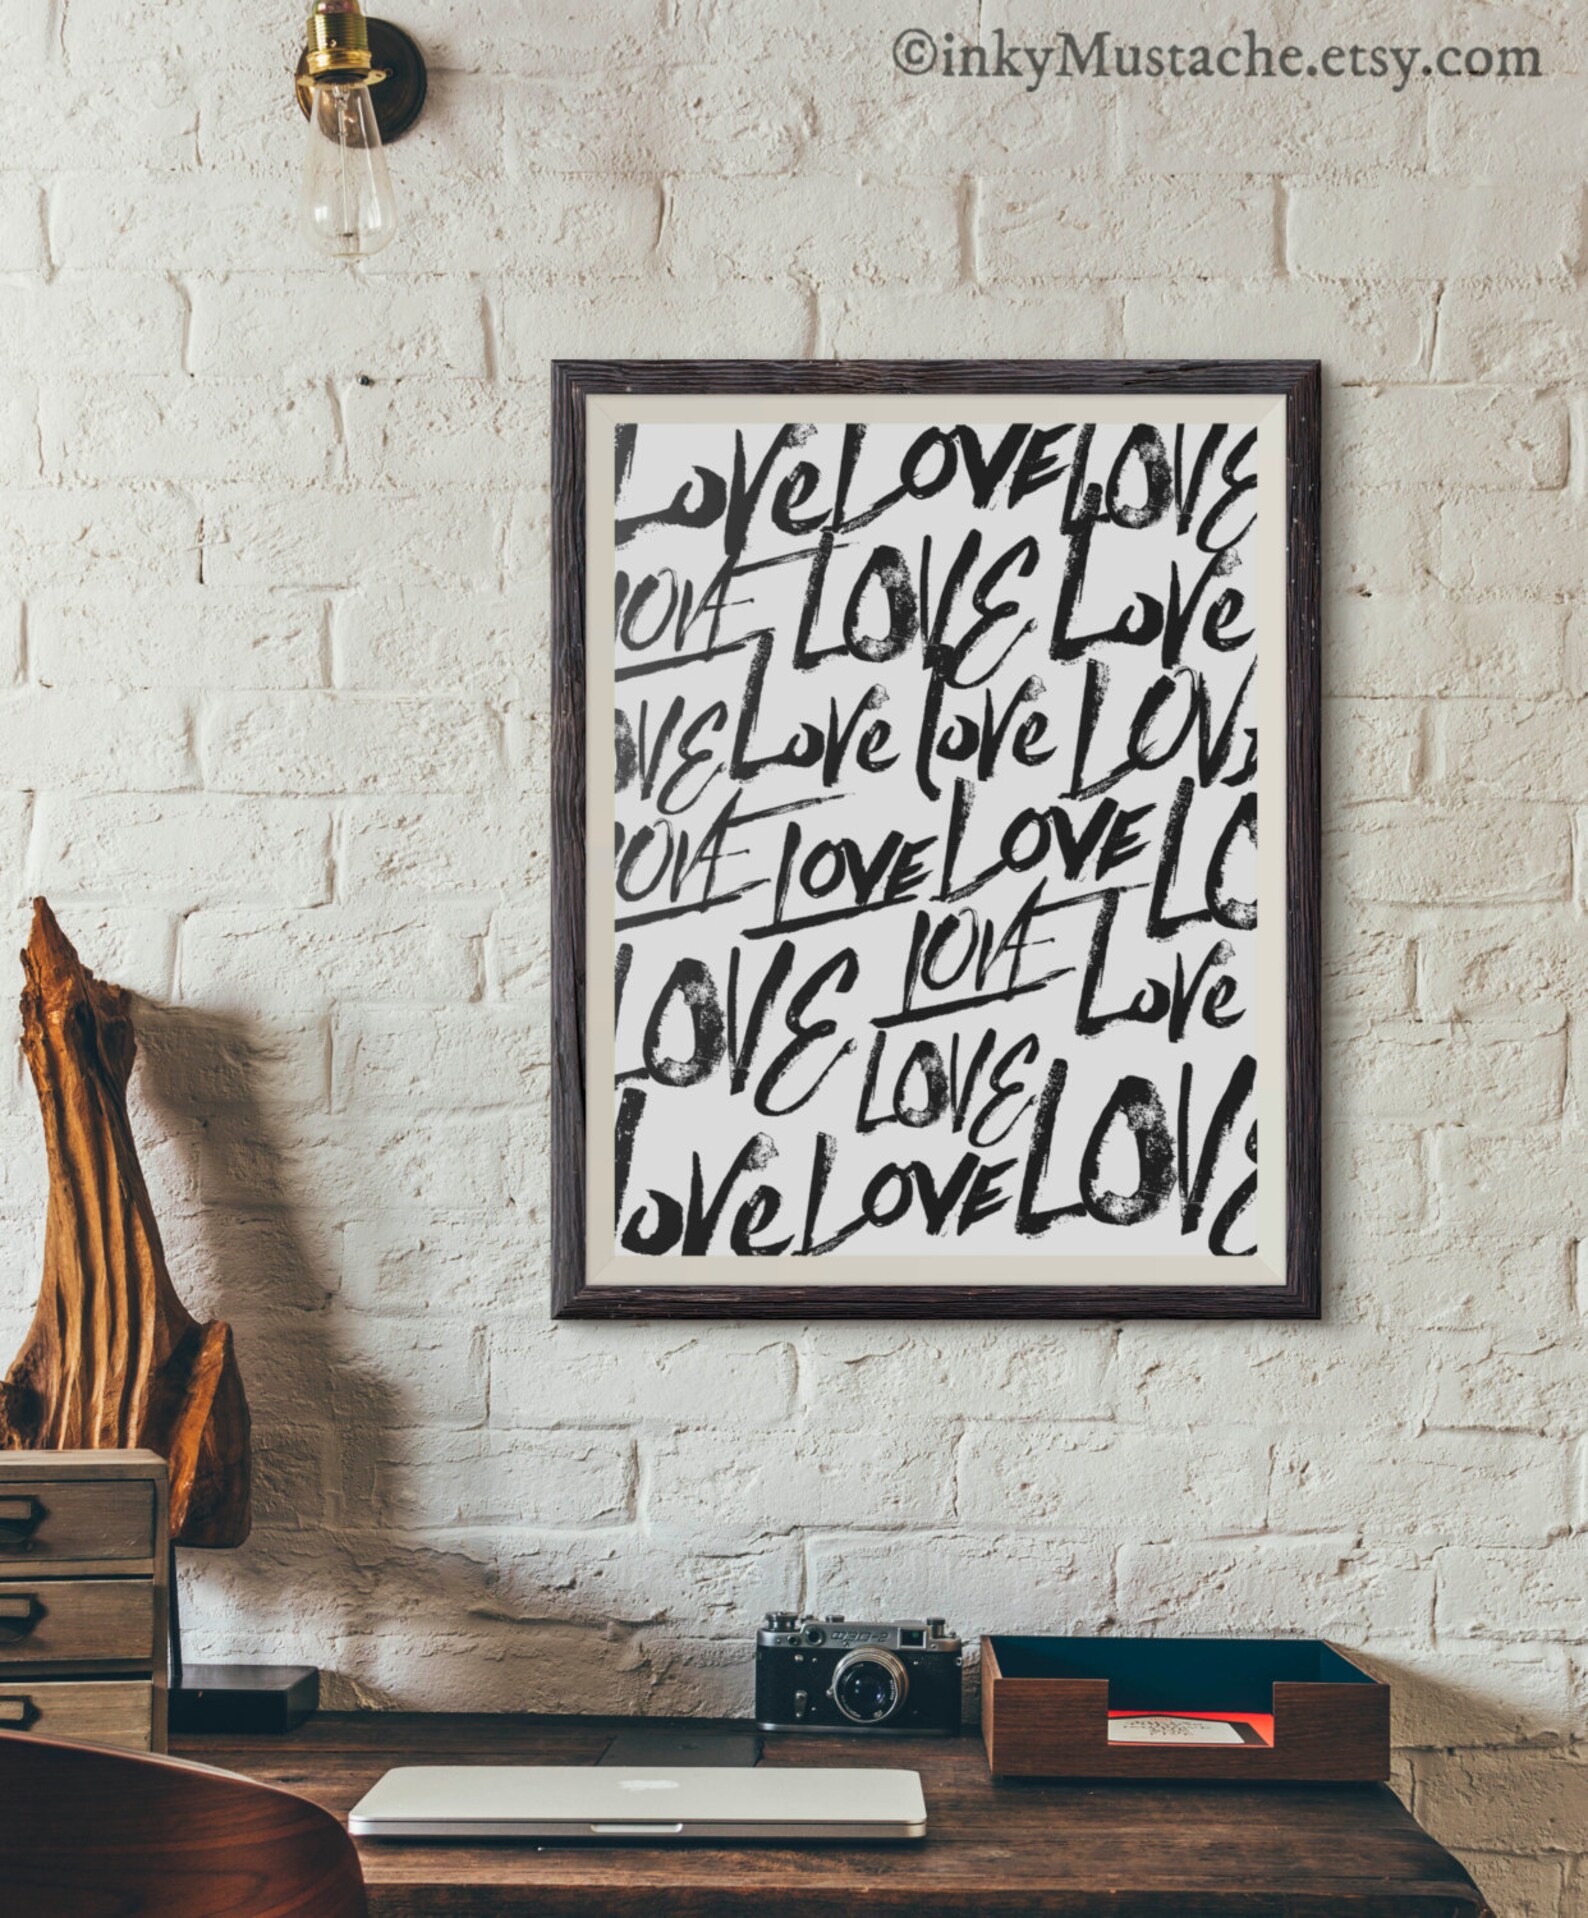 ©inkyMustache.etsy.com
Love LOVE LOVE
LOVE LOVE Love
OVE Love love LOVE
LOVE LOVE LOVE LO
LOVE LOVE Love
LOVE
Love LOVE LOVE
ФЭД-2